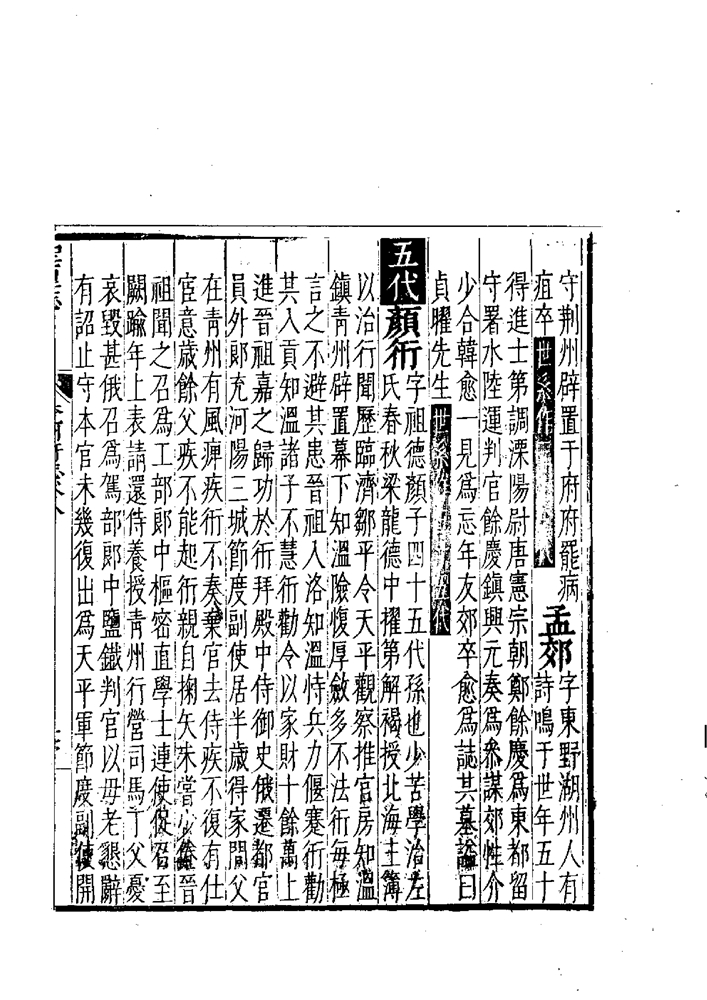 守荆州辟置于府府罷病 孟郊 字東野湖州人有
疽卒 世系作 代 詩鳴于世年五十
得進士第調溧陽尉唐憲宗朝鄭餘慶爲東都留
守署水陸運判官餘慶鎮興元奏爲參謀郊性介
少合韓愈一見爲忘年友郊卒愈爲誌其墓諡曰
貞曜先生 世系作 五代
五代 顏衎 字祖德顏子四十五代孫也少苦學治左
氏春秋梁龍德中擢第解褐授北海主簿
以治行聞歷臨濟鄒平令天平觀察推官房知溫
鎮青州辟置幕下知溫險愎厚斂多不法衎每極
言之不避其患晉祖入洛知溫恃兵力偃蹇衎勸
其入貢知溫諸子不慧衎勸令以家財十餘萬上
進晉祖嘉之歸功於衎拜殿中侍御史俄遷都官
員外郎充河陽三城節度副使居半歲得家問父
在青州有風痺疾衎不奏棄官去侍疾不復有仕
宦意歲餘父疾不能起衎親自掬矢未嘗少倦晉
祖聞之召爲工部郎中樞密直學士連使促召至
闕踰年上表請還侍養授青州行營司馬丁父憂
哀毀甚俄召爲駕部郎中鹽鐵判官以母老懇辭
有詔止守本官未幾復出爲天平軍節度副使開